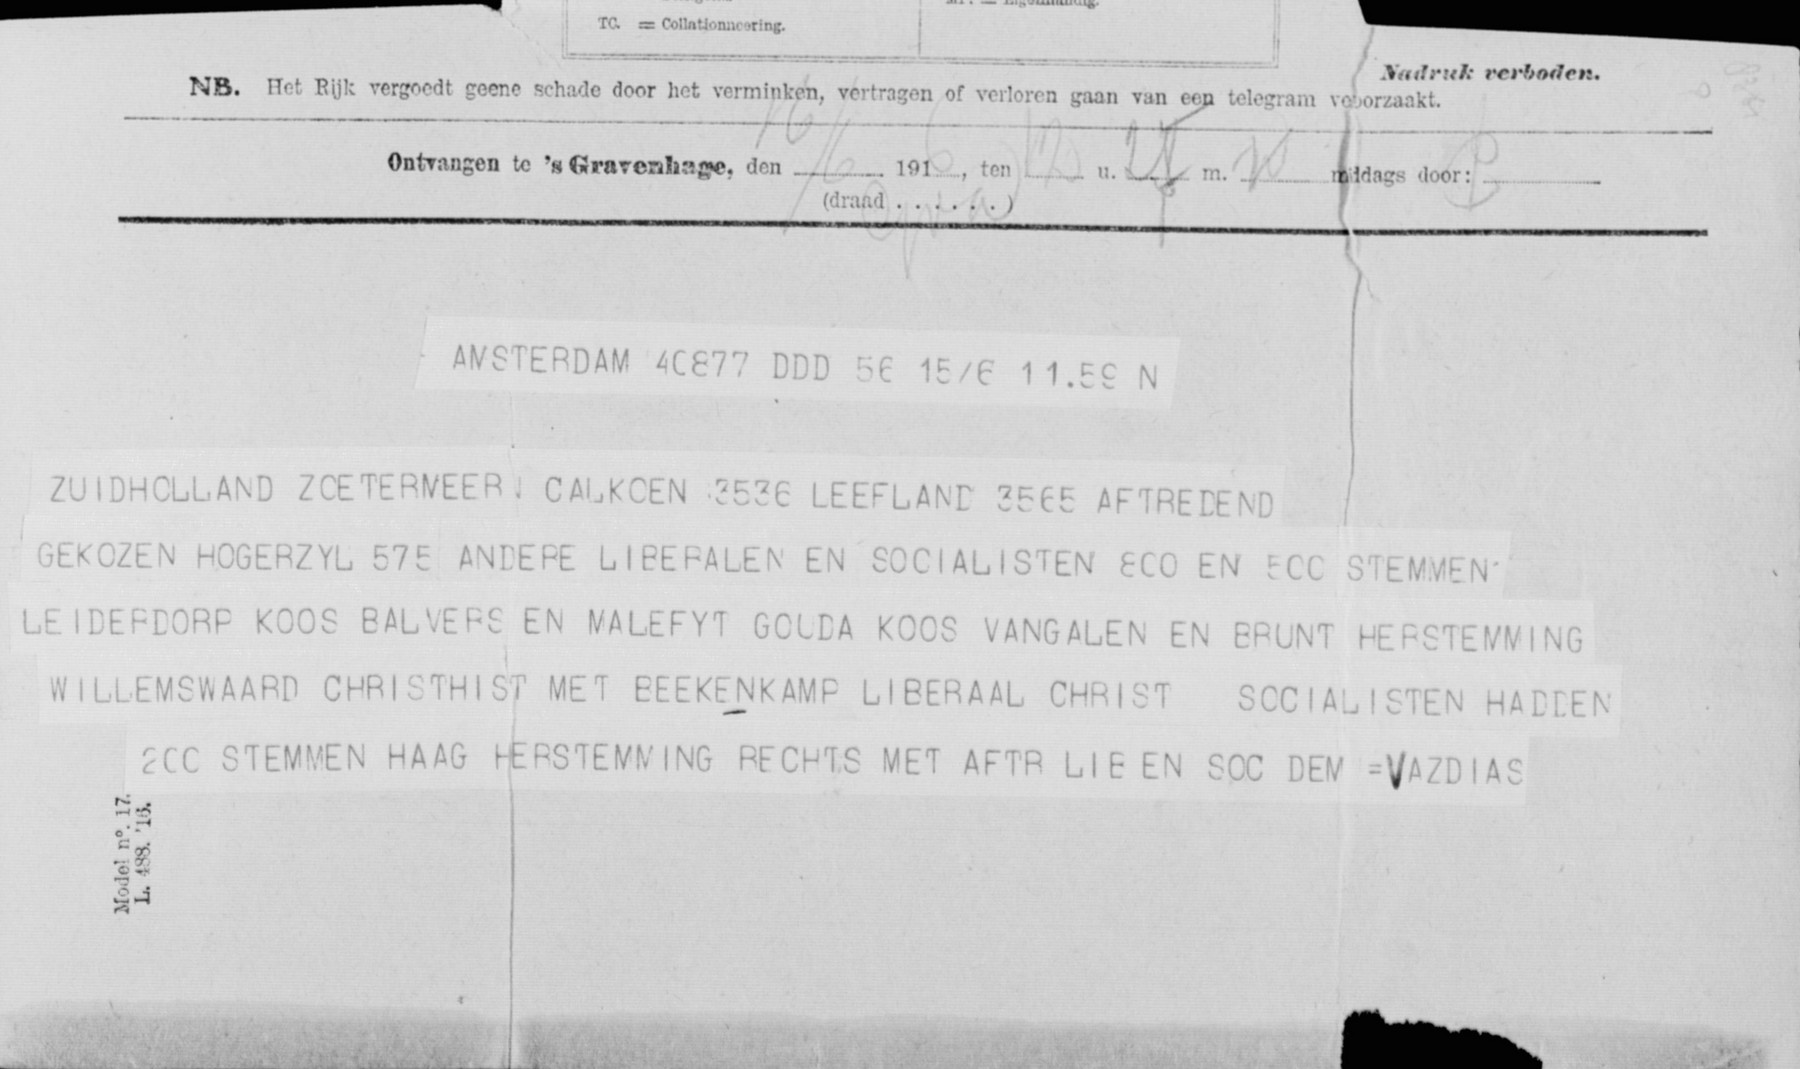 TC. = Collationneering.
Nadruk verboden.
NB. Het Rijk vergoedt geene schade door het verminken, vertragen of verloren gaan van een telegram veroorzaakt.
Ontvangen te 's Gravenhage, den 16/6 1916, ten 12 u. m. middags door:
(draad . . . . . . )
AMSTERDAM 40877 DDD 56 15/6 11.59 N
ZUIDHOLLAND ZOETERMEER CALKOEN 3536 LEEFLAND 3565 AFTREDEND
GEKOZEN HOGERZYL 575 ANDERE LIBERALEN EN SOCIALISTEN 800 EN 500 STEMMEN
LEIDERDORP KOOS BALVERS EN MALEFYT GOUDA KOOS VANGALEN EN BRUNT HERSTEMMING
WILLEMSWAARD CHRISTHIST MET BEEKENKAMP LIBERAAL CHRIST SOCIALISTEN HADDEN
200 STEMMEN HAAG HERSTEMMING RECHTS MET AFTR LIB EN SOC DEM =VAZDIAS
Model n°. 17.
L. 488. '16.